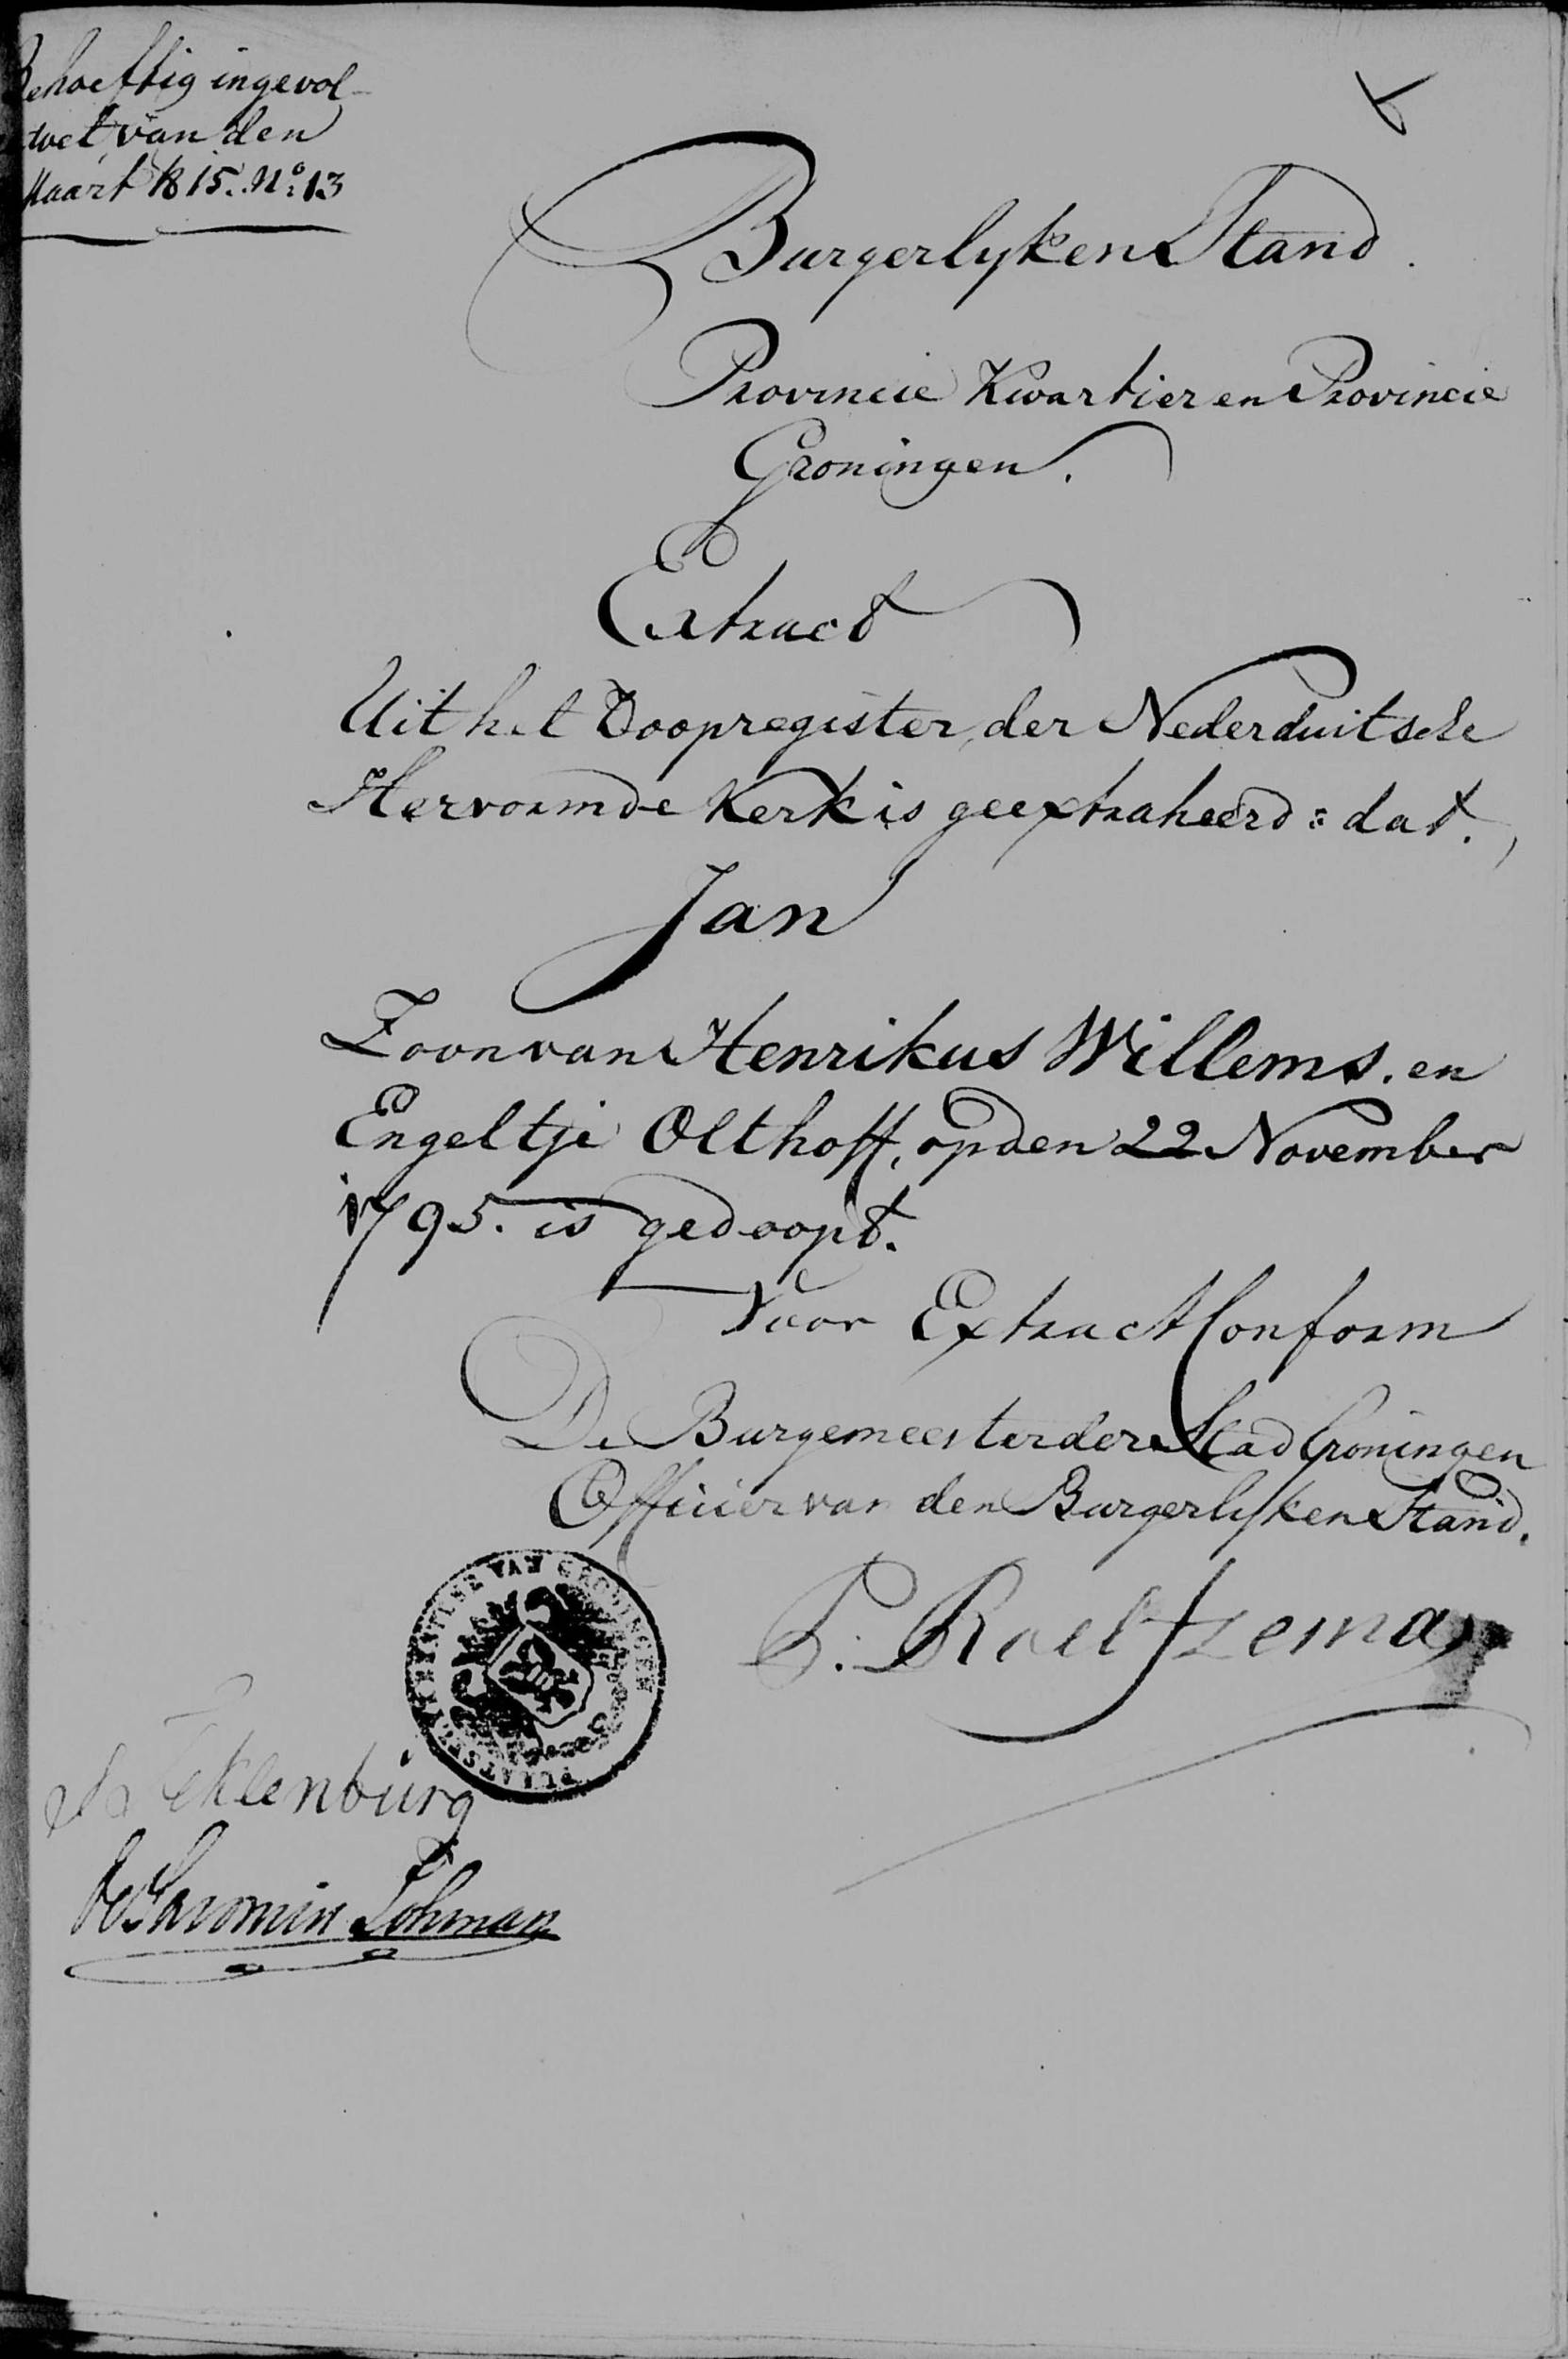 Behoeftig ingevol-
wet van den
Maart 1815. No. 13
Burgerlyken Stand.
Provincie Kwartier en Provincie
Groningen.
Extract
Uit het Doopregister der Nederduitsche
Hervormde Kerk is geextraheerd: dat.,
Jan
Zoon van Henrikus Willems. en
Engeltje Olthoff, op den 22 November
1795. is gedoopt.
Voor Extract Conform
De Burgemeester der Stad Groningen
Officier van den Burgerlyken Stand.
PLAATSELYKE VAN GRONINGEN
P. Roeltzema
Teklenburg
de Savornin Lohman